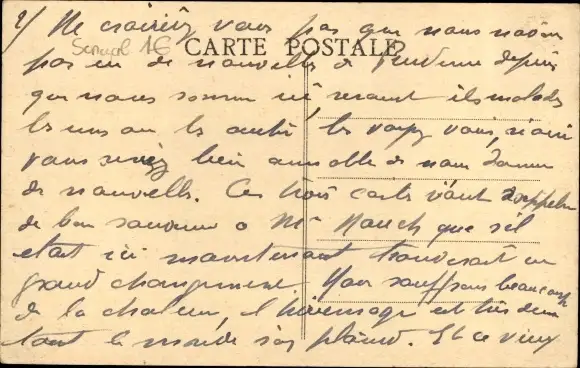 2/ Ne croiriez vous pas que nous n'avons
Senegal 1€
CARTE POSTALE
pas eu de nouvelles de depuis
que nous sommes ici, seraient ils malades
les uns ou les autres, les voyez vous, si oui
vous seriez bien aimable de nous donner
de nouvelles. Ces trois cartes vont rappeler
de bon souvenir a Mr que s'il
etait ici maintenant trouverait un
grand changement. Nous souffrons beaucoup
de la chaleur, l'hivernage est très dur
tout le monde s'en plaint. Et ce vieux